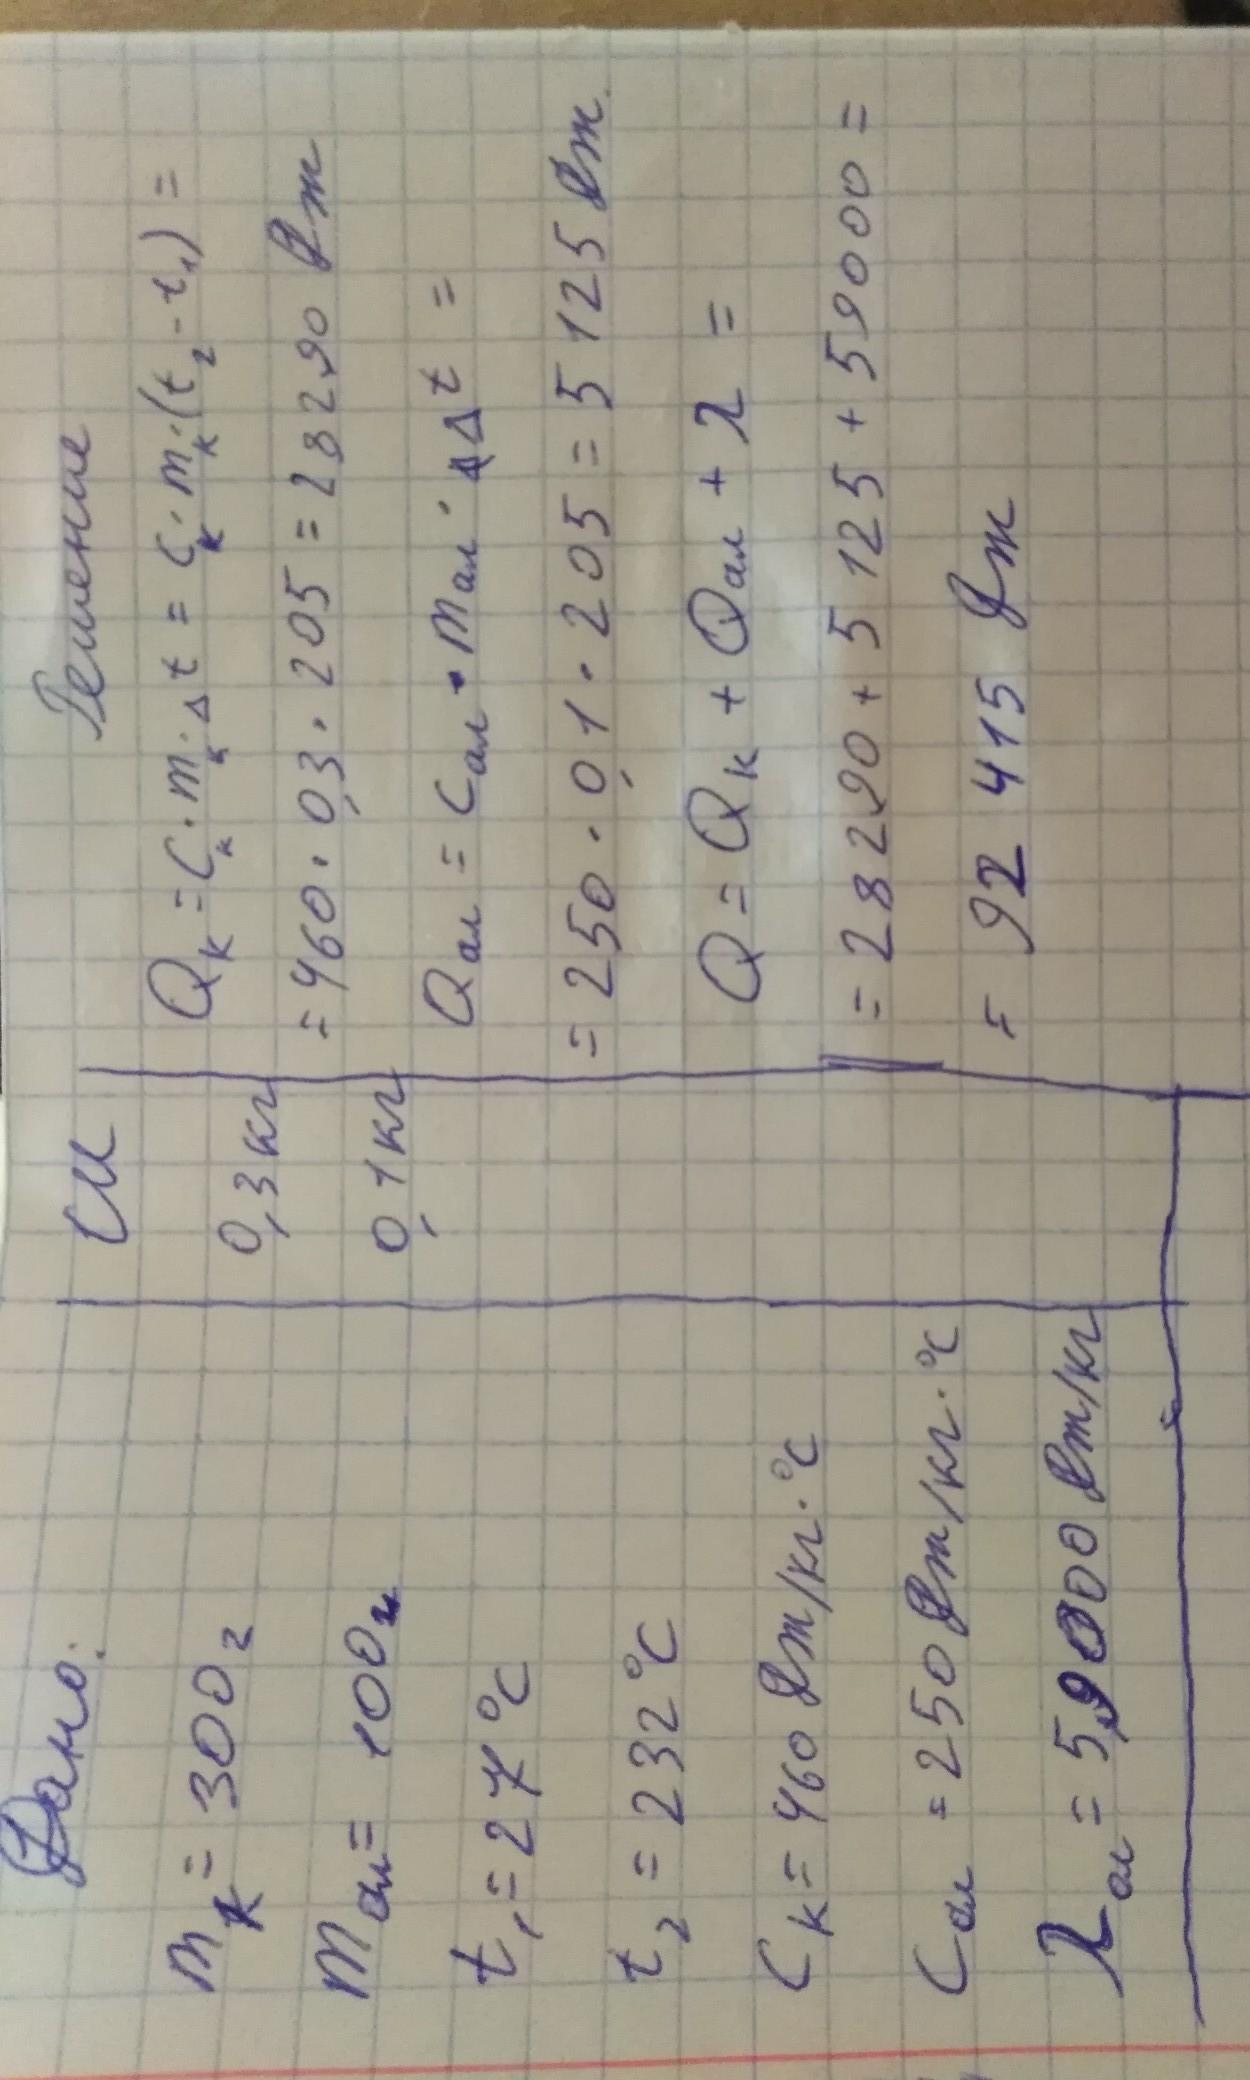 Дано:
m_к = 300 г
m_ол = 100 г
t₁ = 27 °C
t₂ = 232 °C
C_к = 460 Дж/кг·°C
C_ол = 250 Дж/кг·°C
λ_ол = 59000 Дж/кг
СИ
0,3 кг
0,1 кг
Решение
Q_к = C_к · m_к · Δt = C_к · m_к · (t₂ - t₁) =
= 460 · 0,3 · 205 = 28290 Дж
Q_ол = C_ол · m_ол · Δt =
= 250 · 0,1 · 205 = 5 125 Дж.
Q = Q_к + Q_ол + λ =
= 28290 + 5 125 + 59000 =
= 92 415 Дж